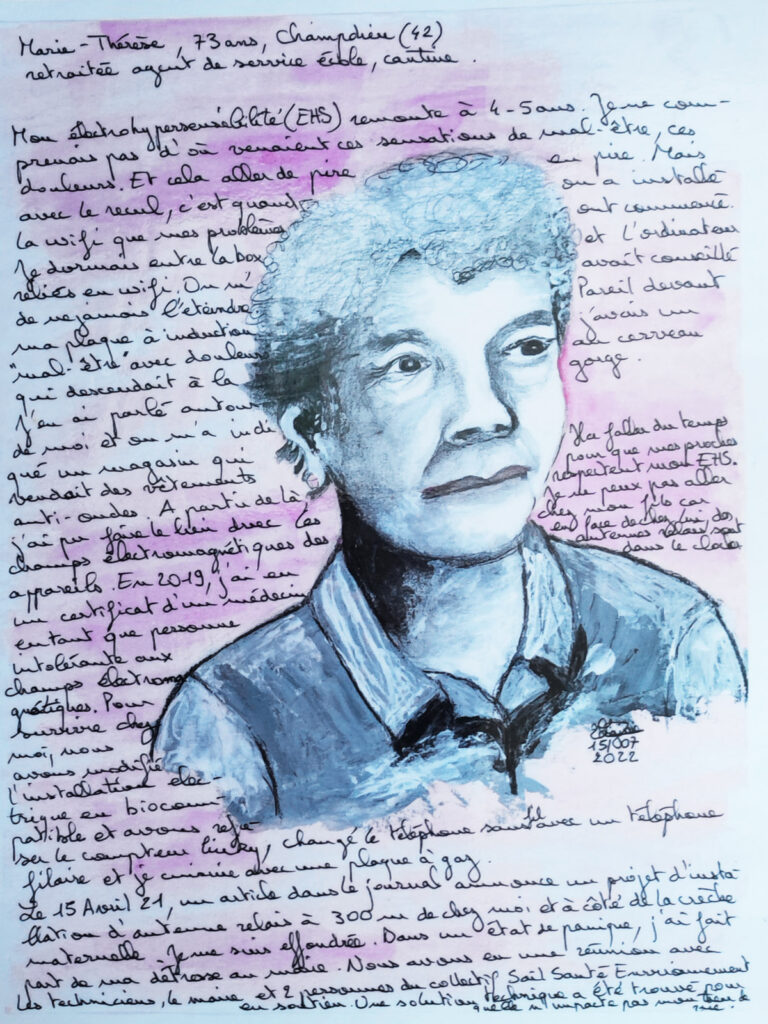 Marie-Thérèse, 73 ans, Champdieu (42)
retraitée agent de service école, cantine.
Mon électrohypersensibilité (EHS) remonte à 4-5 ans. Je ne com-
prenais pas d'où venaient ces sensations de mal-être, ces
douleurs. Et cela aller de pire en pire. Mais
avec le recul, c'est quand on a installé
la wifi que mes problèmes ont commencé.
Je dormais entre la box et l'ordinateur
reliés en wifi. On m'avait conseillé
de ne jamais l'éteindre. Pareil devant
ma plaque à induction j'avais un
"mal-être" avec douleurs au cerveau
qui descendait à la gorge.
J'en ai parlé autour
de moi et on m'a indi-
qué un magasin qui
vendait des vêtements
anti-ondes. A partir de là
j'ai pu faire le lien avec les
champs électromagnétiques des
appareils. En 2019, j'ai eu
un certificat d'un médecin
en tant que personne
intolérante aux
champs électroma
gnétiques. Pour
survivre chez
moi, nous
avons modifié
l'installation élec-
trique en biocom-
patible et avons refu
ser le compteur linky, changé le téléphone sans fil avec un téléphone
filaire et je cuisine avec une plaque à gaz.
Il a fallu du temps
pour que mes proches
respectent mon EHS.
Je ne peux pas aller
chez mon fils car
en face de chez lui des
antennes relais sont
dans le clocher
Le 15 Avril 21, un article dans le journal annonce un projet d'insta
llation d'antenne relais à 300 m de chez moi et à côté de la crèche
maternelle. Je me suis effondrée. Dans un état de panique, j'ai fait
part de ma détresse au maire. Nous avons eu une réunion avec
les techniciens, le maire, et 2 personnes du collectif Soël Santé Environnement
en soutien. Une solution technique a été trouvé pour
qu'elle n'impacte pas mon lieu de
vie.
15/07
2022